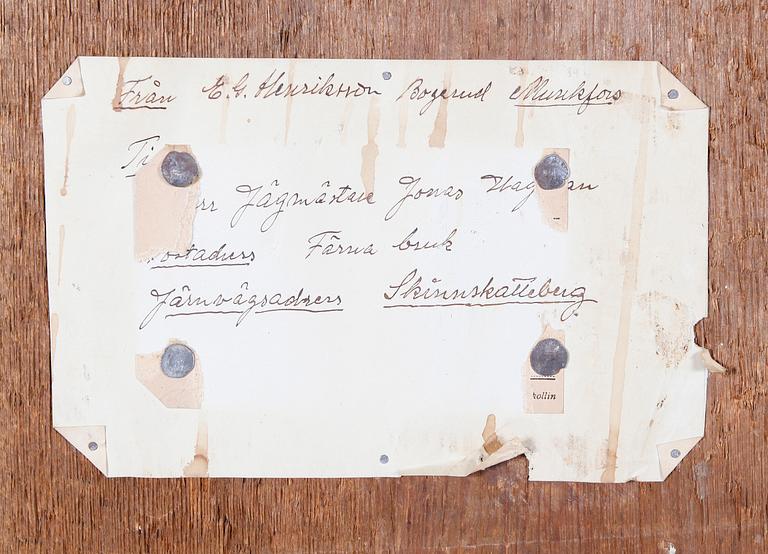 Från E. G. Henriksson Bogerud Munkfors
Ti
rr Jägmästare Jonas Hag an
ostadress Färna bruk
Järnvägsadress Skinnskatteberg
rollin